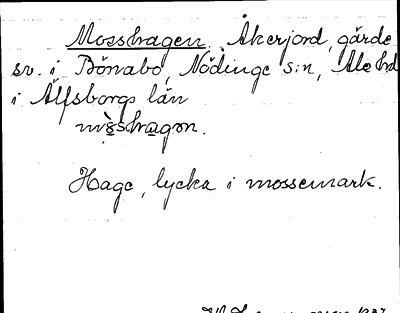 Mosshagen. Åkerjord, gärde
sv. i Bönabo, Nödinge s:n, Ale hd
i Älfsborgs län
mòshagən.
Hage, lycka i mossemark.